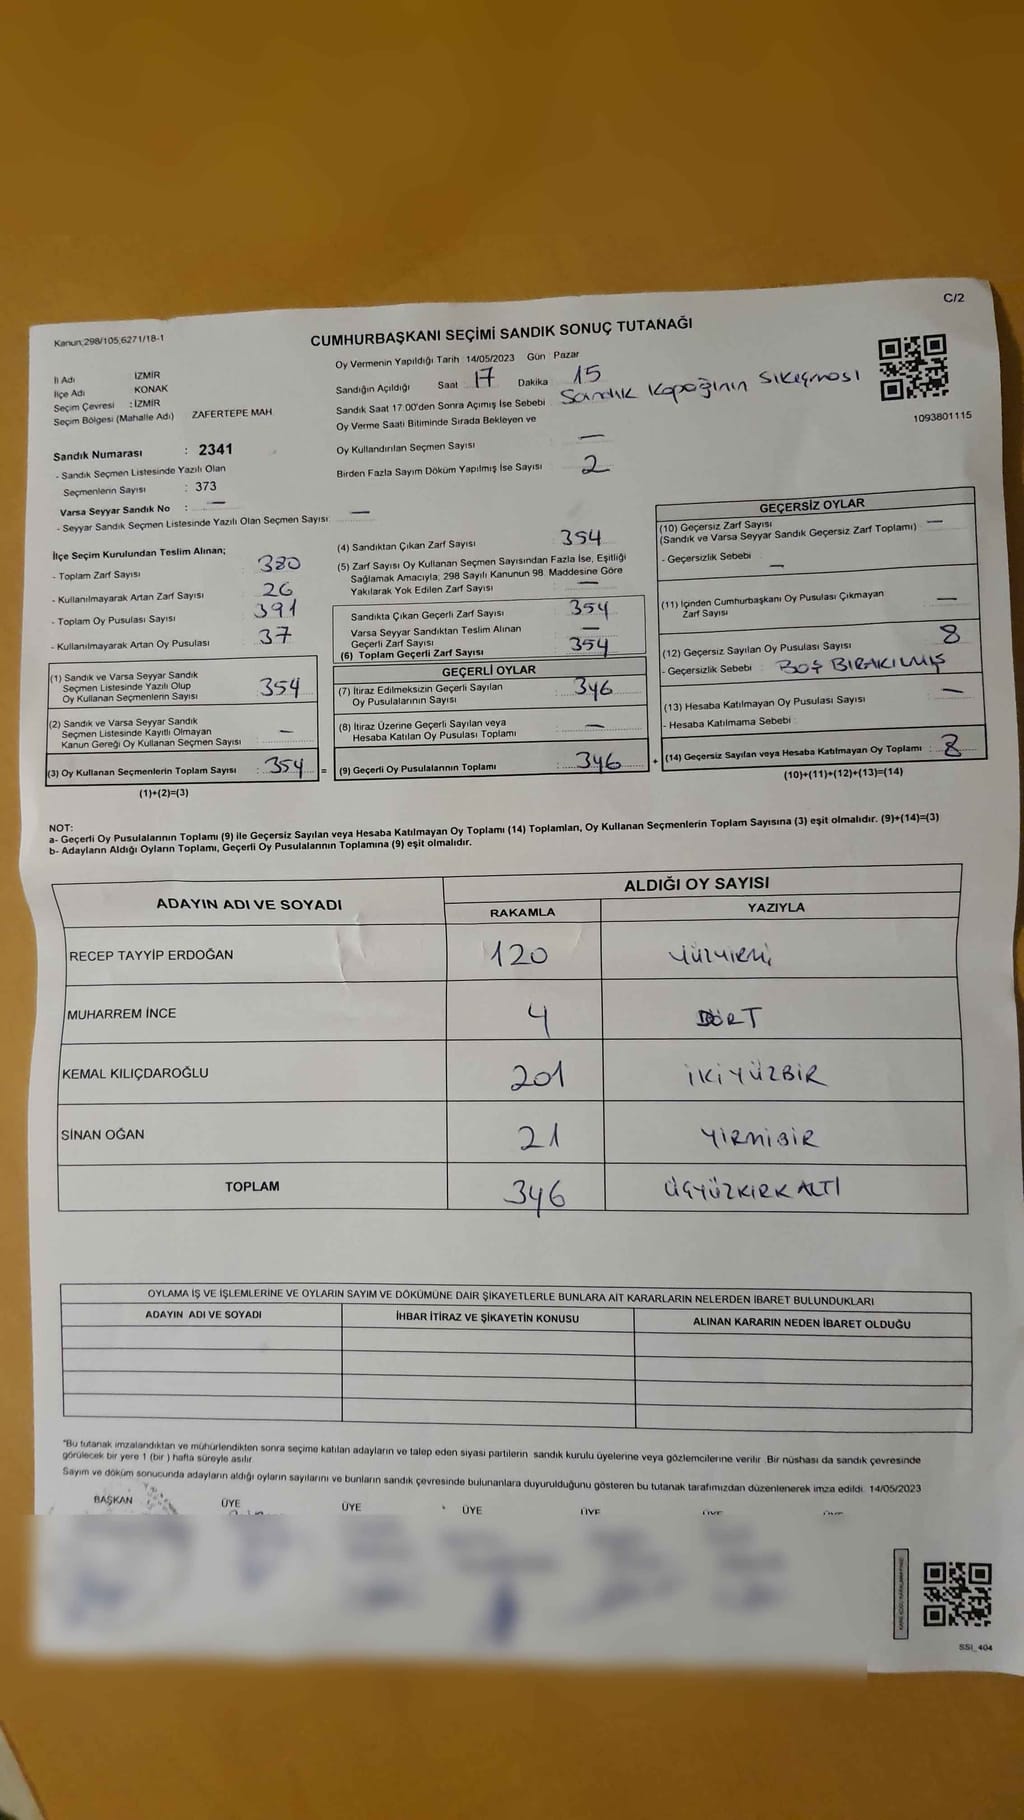 C/2
Kanun;298/105,6271/18-1
CUMHURBAŞKANI SEÇİMİ SANDIK SONUÇ TUTANAĞI
İl Adı İZMİR
İlçe Adı KONAK
Seçim Çevresi : İZMİR
Seçim Bölgesi (Mahalle Adı) ZAFERTEPE MAH.
Oy Vermenin Yapıldığı Tarih 14/05/2023 Gün Pazar
Sandığın Açıldığı Saat 17 Dakika 15
Sandık Saat 17:00'den Sonra Açımış İse Sebebi Sandık Kapağının sıkışması
Oy Verme Saati Bitiminde Sırada Bekleyen ve
Oy Kullandırılan Seçmen Sayısı —
Birden Fazla Sayım Döküm Yapılmış İse Sayısı 2
1093801115
Sandık Numarası : 2341
- Sandık Seçmen Listesinde Yazılı Olan
Seçmenlerin Sayısı : 373
Varsa Seyyar Sandık No : —
- Seyyar Sandık Seçmen Listesinde Yazılı Olan Seçmen Sayısı: —
İlçe Seçim Kurulundan Teslim Alınan;
- Toplam Zarf Sayısı 380
- Kullanılmayarak Artan Zarf Sayısı 26
- Toplam Oy Pusulası Sayısı 391
- Kullanılmayarak Artan Oy Pusulası 37
(1) Sandık ve Varsa Seyyar Sandık
Seçmen Listesinde Yazılı Olup
Oy Kullanan Seçmenlerin Sayısı 354
(2) Sandık ve Varsa Seyyar Sandık
Seçmen Listesinde Kayıtlı Olmayan
Kanun Gereği Oy Kullanan Seçmen Sayısı —
(3) Oy Kullanan Seçmenlerin Toplam Sayısı : 354 =
(1)+(2)=(3)
(4) Sandıktan Çıkan Zarf Sayısı 354
(5) Zarf Sayısı Oy Kullanan Seçmen Sayısından Fazla İse, Eşitliği
Sağlamak Amacıyla, 298 Sayılı Kanunun 98. Maddesine Göre
Yakılarak Yok Edilen Zarf Sayısı —
Sandıkta Çıkan Geçerli Zarf Sayısı 354
Varsa Seyyar Sandıktan Teslim Alınan
Geçerli Zarf Sayısı —
(6) Toplam Geçerli Zarf Sayısı 354
GEÇERLİ OYLAR
(7) İtiraz Edilmeksizin Geçerli Sayılan
Oy Pusulalarının Sayısı 346
(8) İtiraz Üzerine Geçerli Sayılan veya
Hesaba Katılan Oy Pusulası Toplamı —
(9) Geçerli Oy Pusulalarının Toplamı : 346 +
GEÇERSİZ OYLAR
(10) Geçersiz Zarf Sayısı —
(Sandık ve Varsa Seyyar Sandık Geçersiz Zarf Toplamı)
- Geçersizlik Sebebi : —
(11) İçinden Cumhurbaşkanı Oy Pusulası Çıkmayan
Zarf Sayısı —
(12) Geçersiz Sayılan Oy Pusulası Sayısı 8
- Geçersizlik Sebebi : BOŞ BIRAKILMIŞ
(13) Hesaba Katılmayan Oy Pusulası Sayısı —
- Hesaba Katılmama Sebebi :
(14) Geçersiz Sayılan veya Hesaba Katılmayan Oy Toplamı : 8
(10)+(11)+(12)+(13)=(14)
NOT:
a- Geçerli Oy Pusulalarının Toplamı (9) ile Geçersiz Sayılan veya Hesaba Katılmayan Oy Toplamı (14) Toplamları, Oy Kullanan Seçmenlerin Toplam Sayısına (3) eşit olmalıdır. (9)+(14)=(3)
b- Adayların Aldığı Oyların Toplamı, Geçerli Oy Pusulalarının Toplamına (9) eşit olmalıdır.
ADAYIN ADI VE SOYADI
ALDIĞI OY SAYISI
RAKAMLA YAZIYLA
RECEP TAYYİP ERDOĞAN 120 YÜZYİRMİ
MUHARREM İNCE 4 DÖRT
KEMAL KILIÇDAROĞLU 201 İKİYÜZBİR
SİNAN OĞAN 21 YİRMİBİR
TOPLAM 346 ÜÇYÜZKIRKALTI
OYLAMA İŞ VE İŞLEMLERİNE VE OYLARIN SAYIM VE DÖKÜMÜNE DAİR ŞİKAYETLERLE BUNLARA AİT KARARLARIN NELERDEN İBARET BULUNDUKLARI
ADAYIN ADI VE SOYADI İHBAR İTİRAZ VE ŞİKAYETİN KONUSU ALINAN KARARIN NEDEN İBARET OLDUĞU
*Bu tutanak imzalandıktan ve mühürlendikten sonra seçime katılan adayların ve talep eden siyasi partilerin sandık kurulu üyelerine veya gözlemcilerine verilir. Bir nüshası da sandık çevresinde
görülecek bir yere 1 (bir ) hafta süreyle asılır.
Sayım ve döküm sonucunda adayların aldığı oyların sayılarını ve bunların sandık çevresinde bulunanlara duyurulduğunu gösteren bu tutanak tarafımızdan düzenlenerek imza edildi. 14/05/2023
BAŞKAN ÜYE ÜYE ÜYE ÜYE ÜYE ÜYE
SSI_404